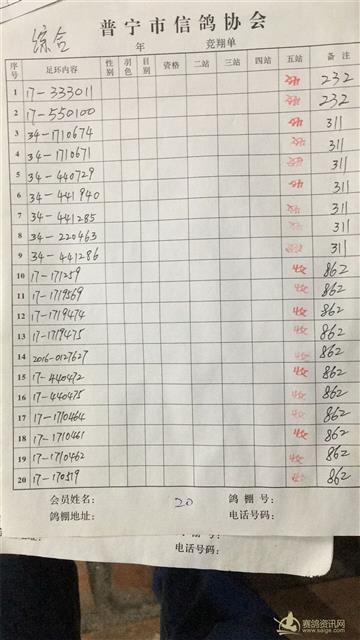 普宁市信鸽协会
综合 年 竞翔单
序号 足环内容 性别 羽色 目别 资格 二站 三站 四站 五站 备注
1 17-333011 收 232
2 17-550100 收 232
3 34-1710674 收 311
4 34-1710671 收 311
5 34-440729 收 311
6 34-441940 收 311
7 34-441285 收 311
8 34-220463 收 311
9 34-441286 收 311
10 17-171259 收 862
11 17-1719569 收 862
12 17-1719474 收 862
13 17-1719475 收 862
14 2016-0127627 收 862
15 17-440472 收 862
16 17-440475 收 862
17 17-1710464 收 862
18 17-1710461 收 862
19 17-1710462 收 862
20 17-170519 收 862
会员姓名: 20 鸽棚号:
鸽棚地址: 电话号码:
电话号码:
赛鸽资讯网
www.saige.com